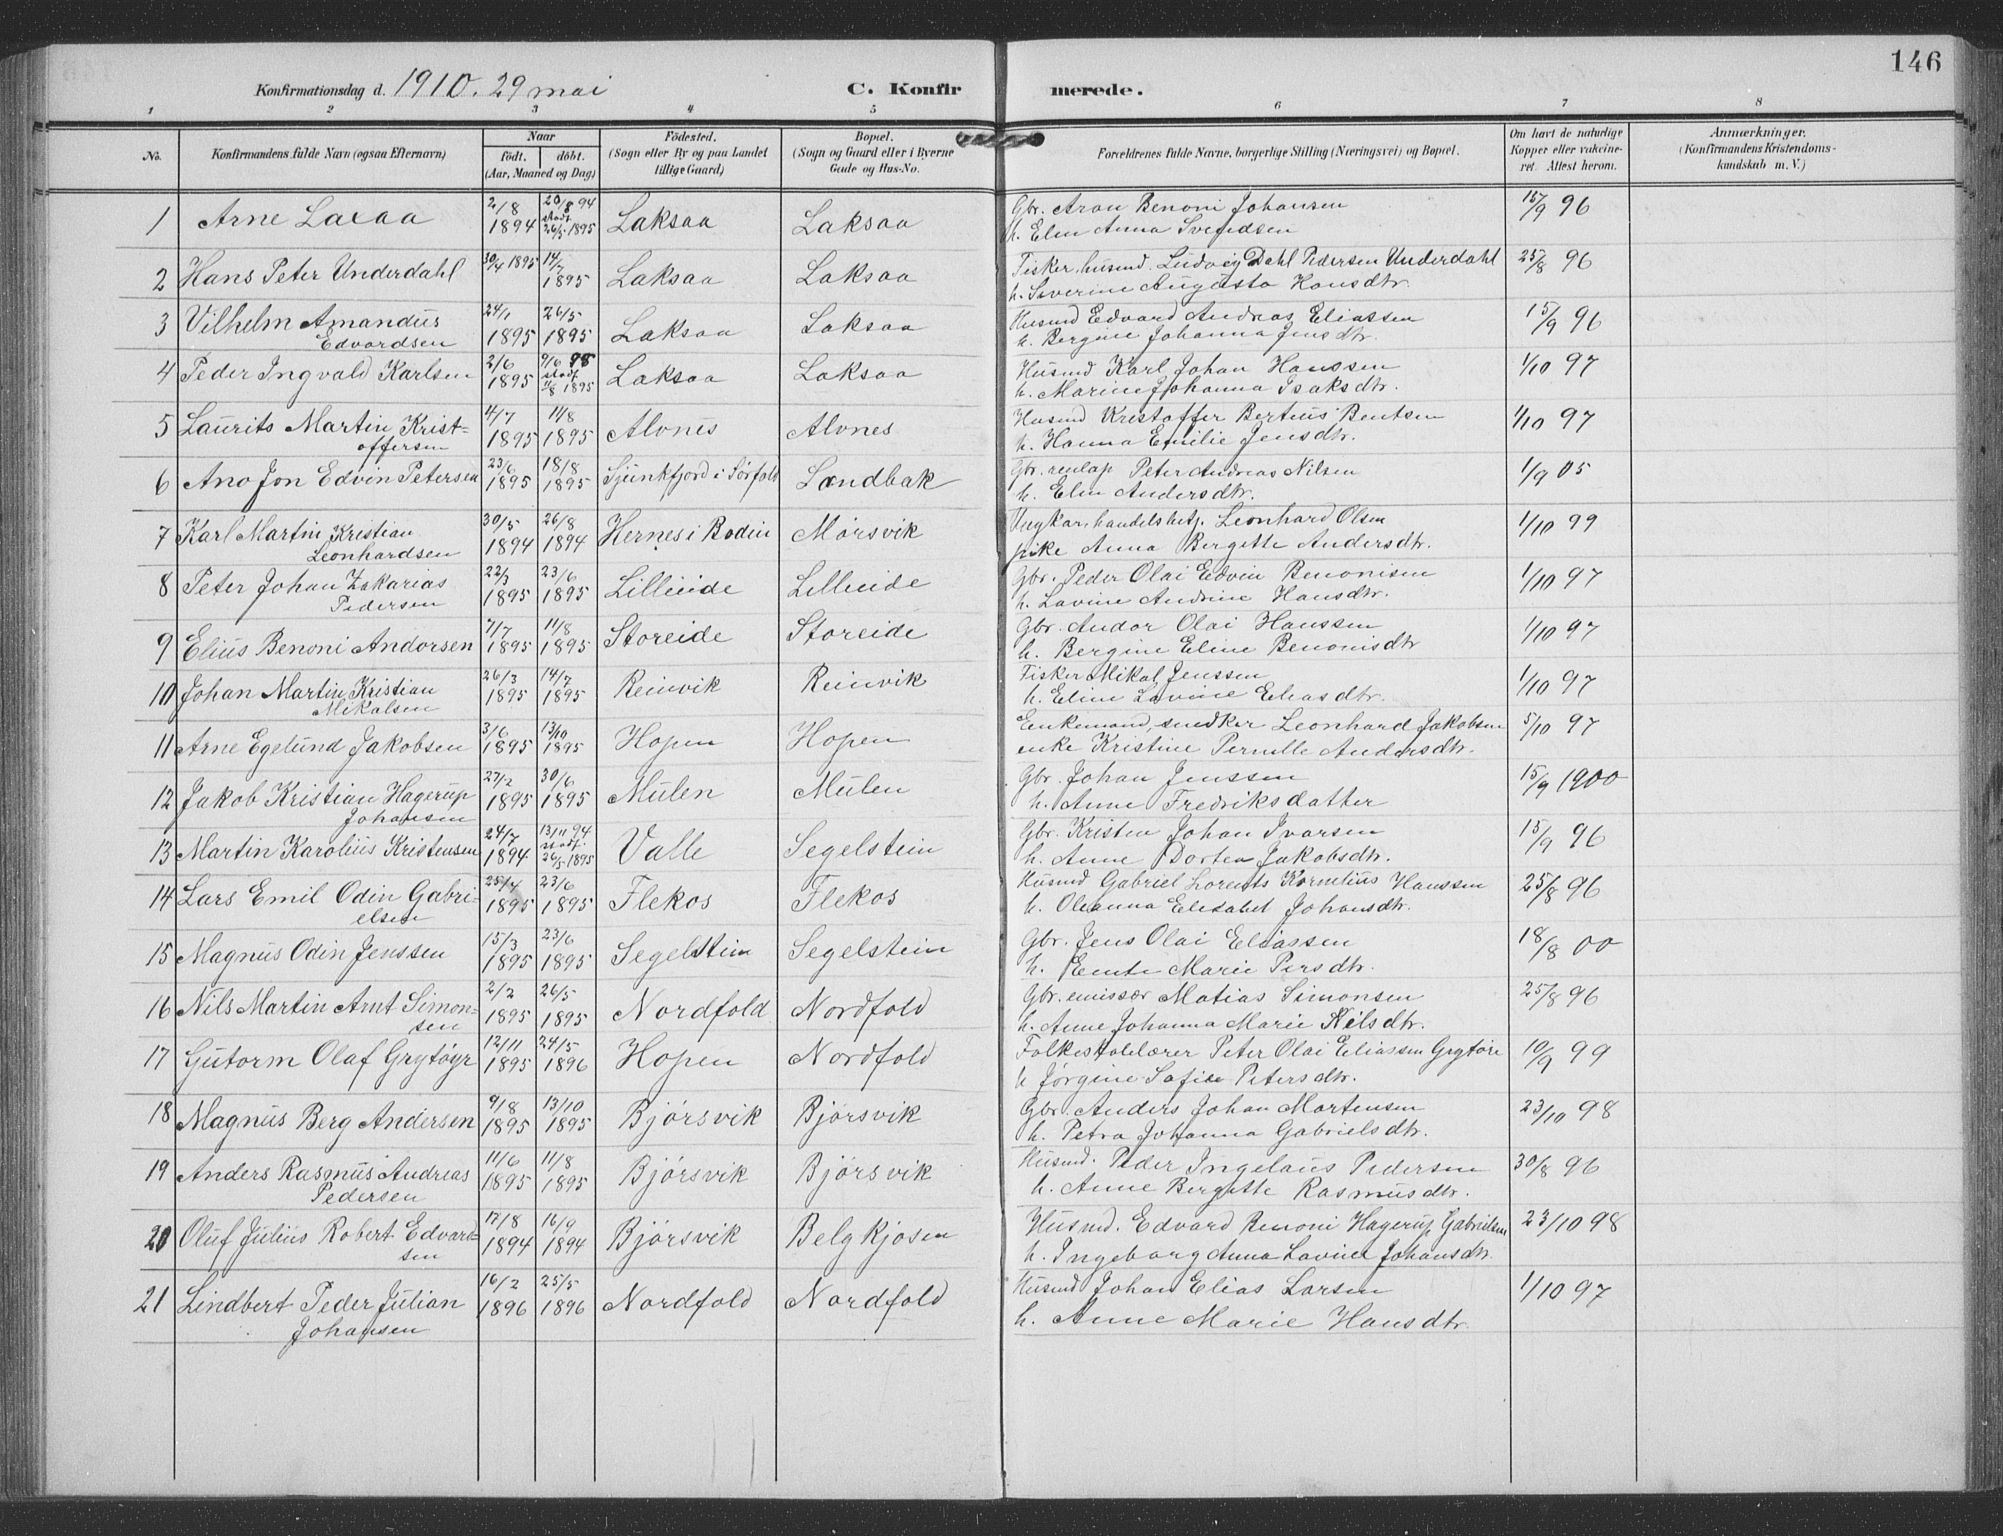 146
Konfirmationsdag d. 1910. 29 mai C. Konfirmerede.
1 2 3 4 5 6 7 8
No. Konfirmandens fulde Navn (ogsaa Efternavn) Naar födt. döbt. (Aar, Maaned og Dag) Födested. (Sogn eller By og paa Landet tillige Gaard) Bopæl. (Sogn og Gaard eller i Byerne Gade og Hus-No. Forældrenes fulde Navne, borgerlige Stilling (Næringsvei) og Bopæl. Om havt de naturlige Kopper eller vakcineret. Attest herom. Anmærkninger. (Konfirmandens Kristendomskundskab m. V.)
1 Arne Laxaa 2/8 1894 20/8 94 stadf. 26/5 1895 Laksaa Laksaa Gbr. Aron Benoni Johansen 15/9 96
h. Elen Anna Svendsen
2 Hans Peter Underdahl 30/4 1895 14/7 1895 Laksaa Laksaa Fisker, husmd. Ludvig Dahl Pedersen Underdahl 25/8 96
h. Severine Augusta Hansdtr.
3 Vilhelm Amandus Edvardsen 24/1 1895 26/5 1895 Laksaa Laksaa Husmd Edvard Andreas Eliassen 15/9 96
h. Bergine Johanna Jensdtr.
4 Peder Ingvald Karlsen 2/6 1895 9/6 98 stadf. 11/8 1895 Laksaa Laksaa Husmd Karl Johan Hanssen 1/10 97
h. Marine Johanna Isaksdtr.
5 Laurits Martin Kristoffersen 4/7 1895 11/8 1895 Alvnes Alvnes Husmd Kristoffer Berteus Bentsen 1/10 97
h. Hanna Emilie Jensdtr.
6 Ano Jon Edvin Petersen 23/6 1895 18/8 1895 Sjunkfjord i Sørfold Sandbak Gbr. renlap Peter Andreas Nilsen 1/9 05
h. Elen Andersdtr.
7 Karl Martin Kristian Leonhardsen 30/5 1894 26/8 1894 Hernes i Bodin Mørsvik Ungkar, handelsbetj. Leonhard Olsen 1/10 99
pike Anna Bergette Andersdtr.
8 Peter Johan Zakarias Pedersen 22/3 1895 23/6 1895 Lilleeide Lilleeide Gbr. Peder Olai Edvin Benonisen 1/10 97
h. Lavine Andrine Hansdtr.
9 Elius Benoni Andorsen 7/7 1895 11/8 1895 Storeide Storeide Gbr. Andor Olai Hanssen 1/10 97
h. Bergine Eline Benonisdtr
10 Johan Martin Kristian Mikalsen 26/3 1895 14/7 1895 Reinvik Reinvik Fisker Mikal Jenssen 1/10 97
h. Elen Lavine Eliasdtr.
11 Arne Egelund Jakobsen 3/6 1895 13/10 1895 Hopen Hopen Enkemand, snedker Leonhard Jakobsen 5/10 97
enke Kristine Pernille Andersdtr.
12 Jakob Kristian Hagerup Johansen 27/2 1895 30/6 1895 Mulen Mulen Gbr. Johan Jenssen 15/9 1900
h. Anne Fredriksdatter
13 Martin Karolius Kristensen 24/7 1894 13/11 94 stadf. 26/5 1895 Valle Segelstein Gbr. Kristen Johan Ivarsen 15/9 96
h. Anne Dortea Jakobsdtr.
14 Lars Emil Odin Gabrielsen 25/4 1895 23/6 1895 Flekos Flekos Husmd Gabriel Lorents Kornelius Hanssen 25/8 96
h. Oleanna Elisabet Johansdtr.
15 Magnus Odin Jenssen 15/3 1895 23/6 1895 Segelstein Segelstein Gbr. Jens Olai Eliassen 18/8 00
h. Marie Persdtr.
16 Nils Martin Arnt Simonsen 2/2 1895 26/5 1895 Nordfold Nordfold Gbr. emissær Matias Simonsen 25/8 96
h. Anne Johanna Marie Nilsdtr.
17 Gutorm Olaf Grytøyr 12/11 1895 24/5 1896 Hopen Nordfold Folkeskolelærer Peter Olai Eliassen Grytøir 10/9 99
h Jørgine Sofie Petersdtr.
18 Magnus Berg Andersen 9/8 1895 13/10 1895 Bjørsvik Bjørsvik Gbr. Anders Johan Mortensen 23/10 98
h. Petra Johanna Gabrielsdtr.
19 Anders Rasmus Andreas Pedersen 11/6 1895 11/8 1895 Bjørsvik Bjørsvik Husmd. Peder Ingelaus Pedersen 30/8 96
h. Anne Bergitte Rasmusdtr.
20 Oluf Julius Robert Edvardsen 17/8 1894 16/9 1894 Bjørsvik Belgkjosen Husmd. Edvard Benoni Hagerup Gabrielsen 23/10 98
h. Ingeborg Anna Lavine Johansdtr.
21 Lindbert Peder Julian Johansen 16/2 1896 25/5 1896 Nordfold Nordfold Husmd Johan Elias Larsen 1/10 97
h. Anne Marie Hansdtr.